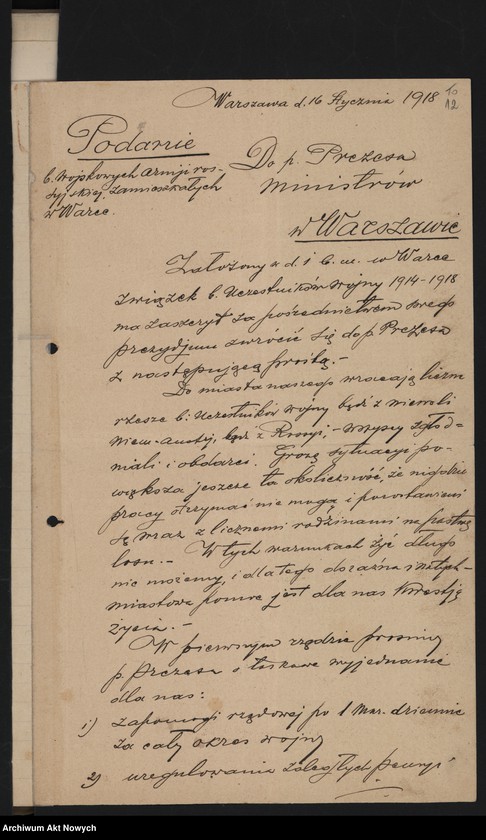 Warszawa d. 16 Stycznia 1918
10
12
Podanie
b. wojskowych armji ros-
syjskiej, zamieszkałych
w Warce.
Do p. Prezesa
Ministrów
w Warszawie
Założony z d. 1 b.m. w Warce
związek b. Uczestników wojny 1914-1918
ma zaszczyt za pośrednictwem swego
prezydjum zwrócić się do p. Prezesa
z następującą prośbą.-
Do miasta naszego wracają liczne
rzesze b. uczestników wojny bądź z niewoli
niem.-austrj., bądź z Rossyi, - wszyscy zgłod-
niali i obdarci. Grozę sytuacyi po-
większa jeszcze ta okoliczność, że nigdzie
pracy otrzymać nie mogą i pozostawieni
są wraz z licznemi rodzinami na pastwę
losu.- W tych warunkach żyć długo
nie możemy, i dlatego doraźna i natych-
miastowa pomoc jest dla nas kwestją
życia.-
W pierwszym rzędzie prosimy
p. Prezesa o łaskawe wyjednanie
dla nas:
1) zapomogi rządowej po 1 Mar. dziennie
za cały okres wojny
2) uregulowania zaległych pensyi
Archiwum Akt Nowych